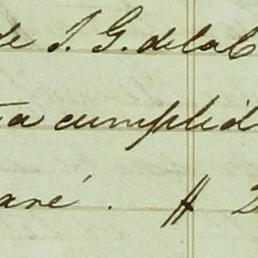 de J. G. de la C
ta cumplid
aré. A 2